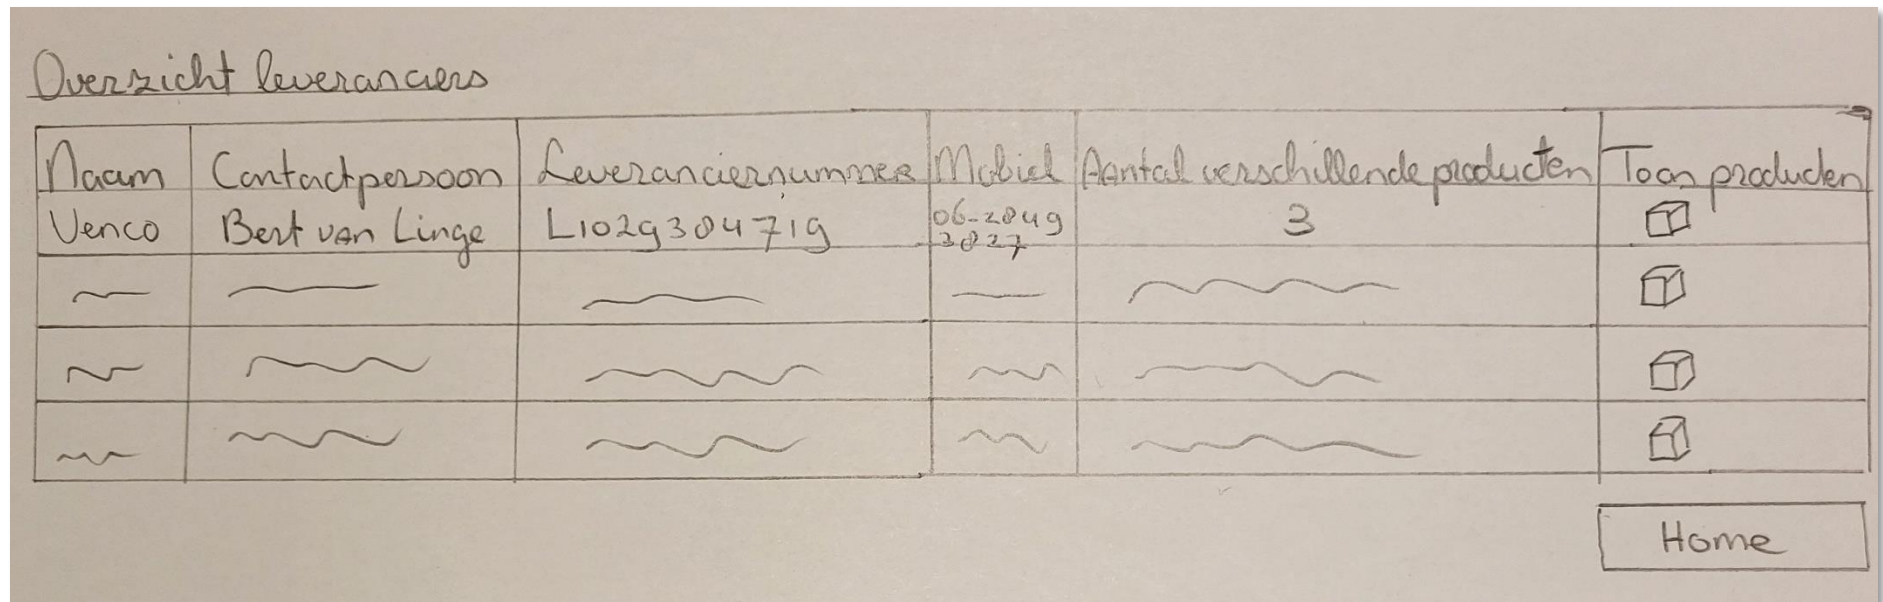 Overzicht leveranciers
Naam Contactpersoon Leveranciernummer Mobiel Aantal verschillende producten Toon producten
Venco Bert van Linge L1029384719 06-2849 3
3827
Home